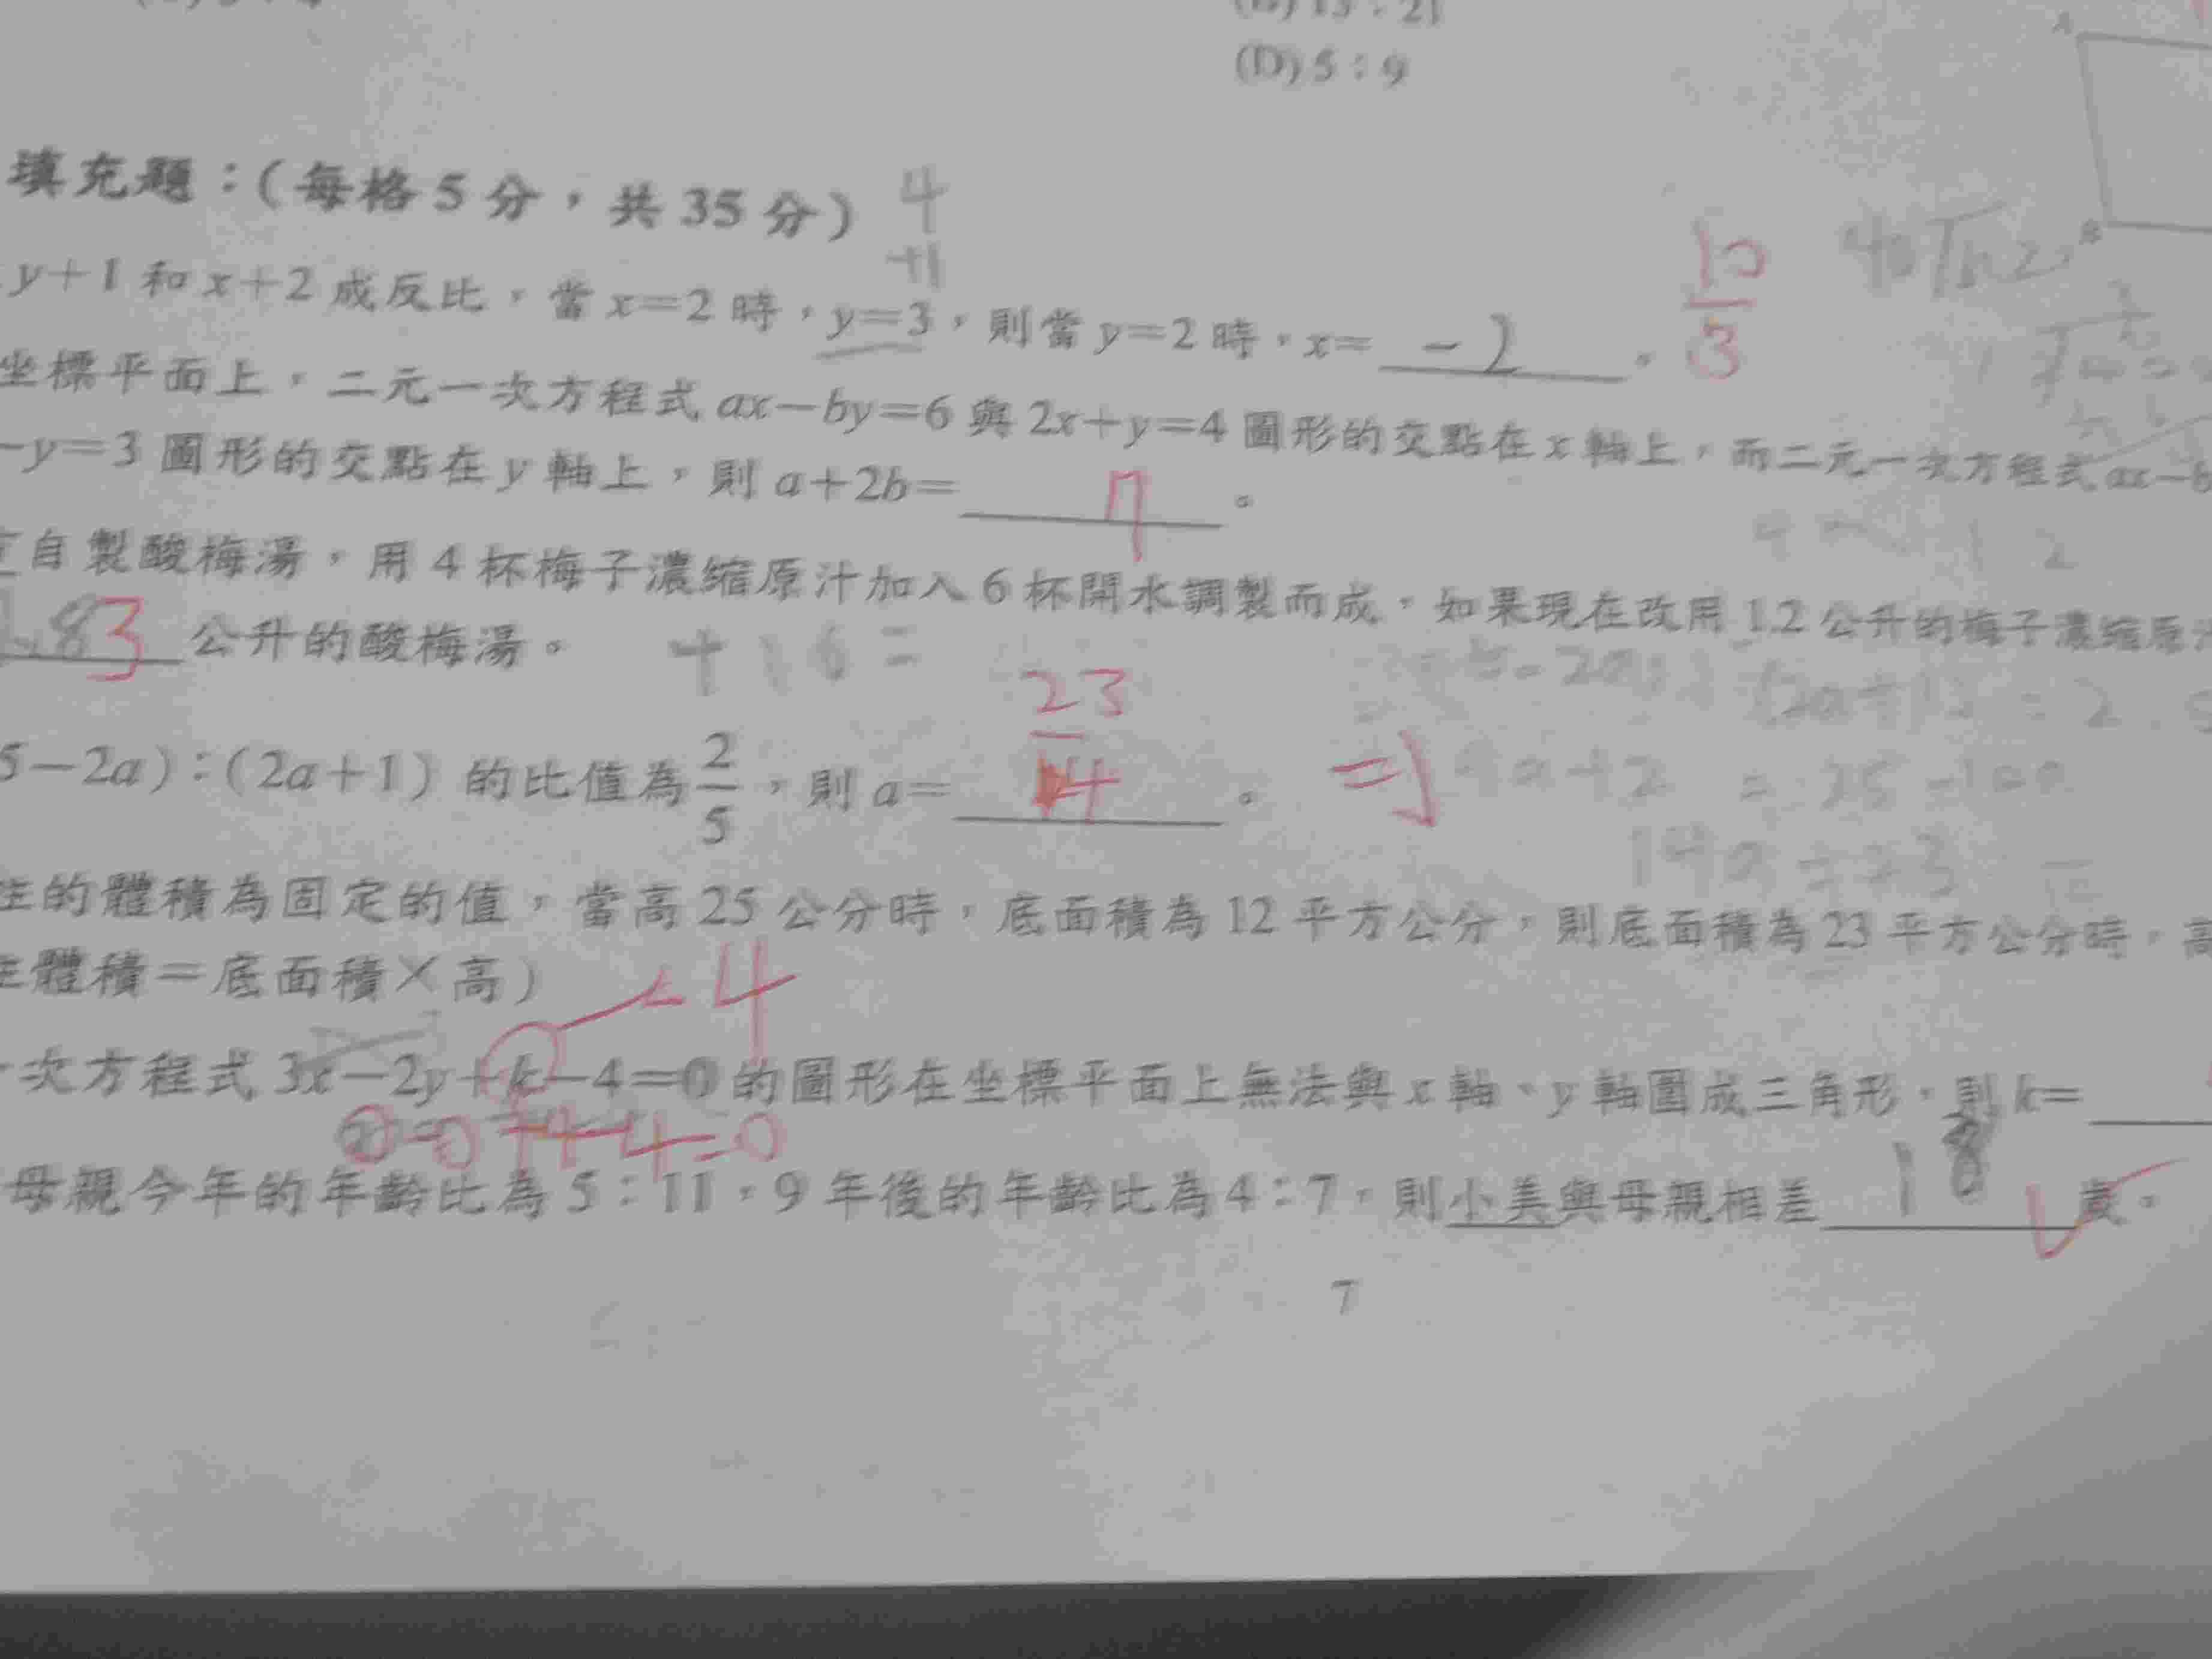 (D) 5：9
填充題：(每格 5 分，共 35 分) 4
+1
y＋1 和 x＋2 成反比，當 x＝2 時，y＝3，則當 y＝2 時，x＝ －2 。 10/3
坐標平面上，二元一次方程式 ax－by＝6 與 2x＋y＝4 圖形的交點在 x 軸上，而二元一次方程式 ax－b
－y＝3 圖形的交點在 y 軸上，則 a＋2b＝ 7 。
自製酸梅湯，用 4 杯梅子濃縮原汁加入 6 杯開水調製而成，如果現在改用 12 公升的梅子濃縮原
83 3 公升的酸梅湯。 + 16 =
5－2a)：(2a＋1) 的比值為 2/5，則 a＝ 23/14 。 => 4a+2 = 25-10a
14a = 23
的體積為固定的值，當高 25 公分時，底面積為 12 平方公分，則底面積為 23 平方公分時，高
體積＝底面積×高)
4
次方程式 3x－2y＋k－4＝0 的圖形在坐標平面上無法與 x 軸、y 軸圍成三角形，則 k＝
+4-4=0
母親今年的年齡比為 5：11，9 年後的年齡比為 4：7，則小美與母親相差 18 歲。
7